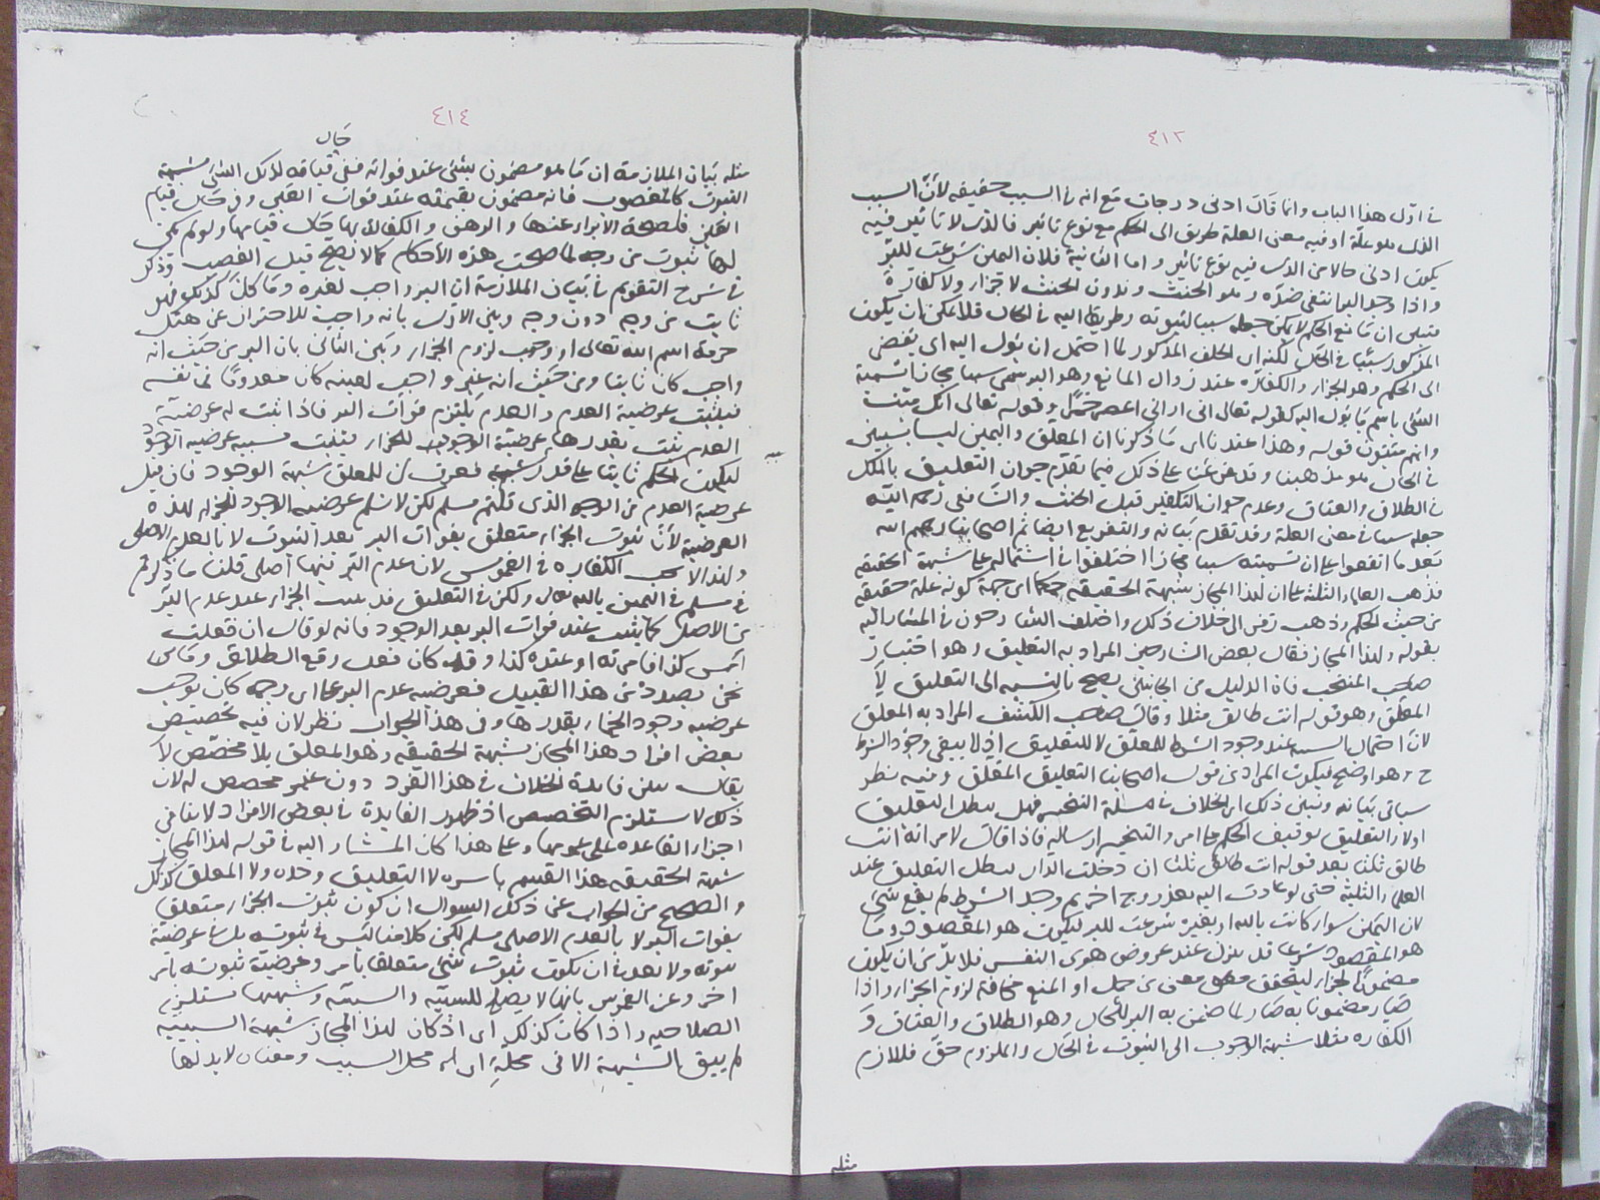 ٤١٣
في اول هذا الباب وانما قال ادنى درجات مع انه في السبب حقيقيه لأن السبب
الذى هو علة او فيه معنى العلة طريق الى الحكم مع نوع تاثير فالذى لا تاثير فيه
يكون ادنى حالا من الذى فيه نوع تاثير واما الثانية فلان اليمين شرعت للبر
واذا وجد البر انتفى ضده وهو الحنث وبدون الحنث لا جزاء ولا كفارة
فتبين ان مانع الحكم لا يمكن جعله سببا لثبوته وطريقا اليه في الحال فلا يمكن ان يكون
المذكور سببا في الحال لكنه اى الحلف المذكور لما احتمل ان يئول اليه اى يفضى
الى الحكم وهو الجزاء والكفارة عند زوال المانع وهو البر سمى سببا مجازا تسمية
الشئ باسم ما يئول اليه كقوله تعالى انى ارانى اعصر خمرا وقوله تعالى انك ميت
وانهم ميتون قوله وهذا عندنا اى ما ذكرنا ان المعلق واليمين ليسا بسببين
في الحال هو مذهبنا وقد فرعنا على ذلك فيما تقدم جواز التعليق بالملك
في الطلاق والعتاق وعدم جواز التكفير قبل الحنث والشافعى رحمه الله
جعله سببا في معنى العلة وقد تقدم بيانه والتفريع ايضا ثم اصحابنا رحمهم الله
بعد ما اتفقوا على ان تسميته سببا مجازا اختلفوا في اشتماله على شبهة الحقيقة
فذهب العلماء الثلثة على ان لهذا المجاز شبهة الحقيقة حكما اى جهة كونه علة حقيقة
من حيث الحكم وذهب زفر الى خلاف ذلك واختلف الشارحون في المشار اليه
بقوله ولهذا المجاز فقال بعض الشارحين المراد به التعليق وهو اختيار
صاحب المنتخب فان الدليل من الجانبين يصح بالنسبة الى التعليق لا
المعلق وهو قوله انت طالق مثلا وقال صاحب الكشف المراد به المعلق
لان احتمال السببية عند وجود الشرط للمعلق لا للتعليق اذ لا يبقى وجود الشرط
ح وهو اوضح فيكون المراد من قول اصحابنا التعليق المعلق وفيه نظر
سياتى بيانه ويبتنى ذلك اى الخلاف في مسئلة التنجيز هل يبطل التعليق
اولا والتعليق توقيف الحكم على امر والتنجيز ارساله فاذا قال لامراته انت
طالق ثلثا بعد قوله انت طالق ثلثا ان دخلت الدار يبطل التعليق عند
العلماء الثلثة حتى لو عادت اليه بعد زوج اخر ثم وجد الشرط لم يقع شئ
لان اليمين سواء كانت بالله او بغيره شرعت للبر ليكون هو المقصود وما
هو المقصود شرعا قد يزل عند عروض هوى النفس فلا بد من ان يكون
مضمونا بالجزاء ليتحقق معنى من حمل او المنع مخافة لزوم الجزاء واذا
صار مضمونا به صار لما ضمن به البر للحال وهو الطلاق والعتاق و
الكفارة مثلا شبهة الوجوب اى الثبوت في الحال والملزوم حق فاللازم
مثله
٤١٤
مثله بيان الملازمة ان ما هو مضمون بشئ عند فواته ففى حال قيامه لذلك الشئ شبهة
الثبوت كالمغصوب فانه مضمون بقيمته عند فوات العين وفي حال قيام
العين فلصحة الابراء عنها والرهن والكفالة بها حال قيامها ولو لم يكن
لها ثبوت من وجه لما صحت هذه الأحكام كما لا يصح قبل الغصب وذكر
في شرح التقويم في بيان الملازمة ان البر واجب لغيره وما كان كذلك فهو
ثابت من وجه دون وجه وبنى الاول بانه واجب للاحتراز عن هتك
حرمة اسم الله تعالى او وجوب لزوم الجزاء وبين الثانى بان البر من حيث انه
واجب كان ثابتا ومن حيث انه غير واجب لعينه كان معدوما في نفسه
فيثبت عرضية العدم والعدم يلتزم فوات البر فاذا ثبت له عرضية
العدم ثبت بقدرها عرضية الوجود للجزاء فيثبت سببه عرضية الوجود
ليكون الحكم ثابتا على قدر سببه فعرف ان للمعلق شبهة الوجود فان قيل
عرضية العدم من الوجه الذى قلتم مسلم لكن لا نسلم عرضية الوجود للجزاء لهذه
العرضية لأن ثبوت الجزاء متعلق بفوات البر بعد الثبوت لا بالعدم الاصلى
ولهذا لا يجب الكفارة في الغموس لان عدم البر فيها اصلى قلنا ما ذكرتم
مسلم في اليمين بالله تعالى ولكن في التعليق قد يثبت الجزاء عند عدم البر
من الاصل كما يثبت عند فوات البر بعد الوجود فانه لو قال ان فعلت
امس كذا فامرأته او عبده كذا وقد كان فعل وقع الطلاق وما
نحن بصدده من هذا القبيل فعرضية عدم البر على اى وجه كان يوجب
عرضية وجود الجزاء بقدرها وفي هذا الجواب نظر لان فيه تخصيص
بعض افراد هذا المجاز بشبهة الحقيقة وهو المعلق بلا مخصص لا
يقال فائدة الخلاف في هذا الفرد دون غيره مخصص له لان
ذلك لا يستلزم التخصيص اذ ظهور الفايدة في بعض الافراد لا ينافي
اجراء القاعدة على عمومها وعلى هذا كان المشار اليه في قوله لهذا المجاز
شبهة الحقيقة هذا القسم باسره لا التعليق وحده ولا المعلق كذلك
والصحيح من الجواب عن ذلك السوال ان كون ثبوت الجزاء متعلق
بفوات البر لا بالعدم الاصلى مسلم لكن كلامنا ليس في ثبوته بل في عرضية
ثبوته ولا بعد في ان يكون ثبوت شئ متعلقا بامر وعرضية ثبوته بامر
اخر وعن الغموس بانها لا يصلح للسببية والسببية وشبهها يستلزم
الصلاحية واذا كان كذلك اى اذ كان لهذا المجاز شبهة السببية
لم يبق الشبهة الا في محله اى في محل السبب ومعناه لا بد لها